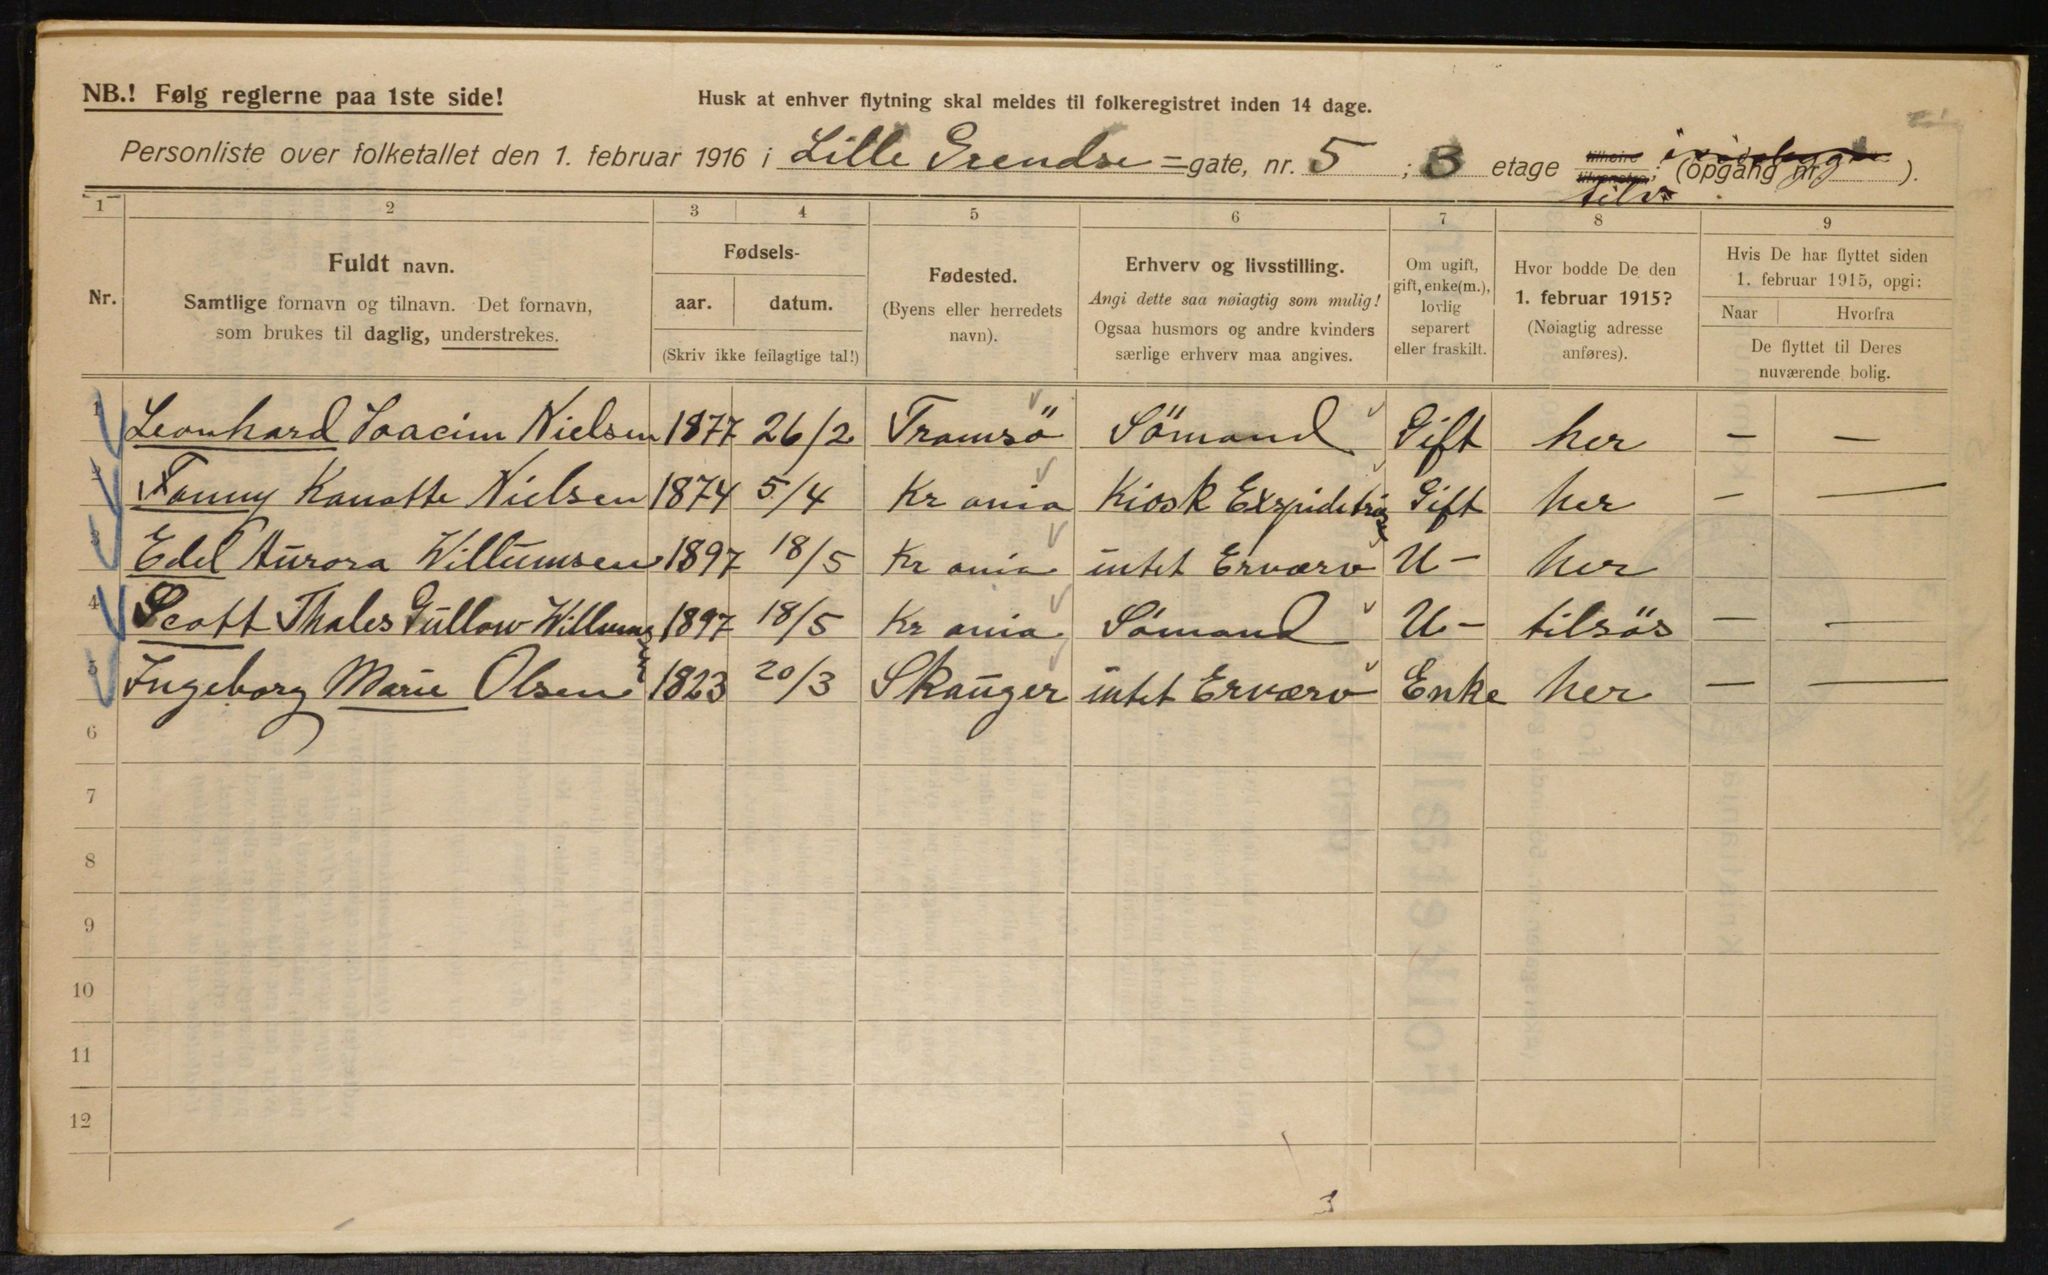 NB.! Følg reglerne paa 1ste side!
Husk at enhver flytning skal meldes til folkeregistret inden 14 dage.
Personliste over folketallet den 1. februar 1916 i Lille Grendse = gate, nr. 5 ; 3 etage tilhøire tilvenstre; (opgang nr. ).
tilv
1 2 3 4 5 6 7 8 9
Nr.
Fuldt navn.
Samtlige fornavn og tilnavn. Det fornavn,
som brukes til daglig, understrekes.
Fødsels-
aar. datum.
(Skriv ikke feilagtige tal!)
Fødested.
(Byens eller herredets
navn).
Erhverv og livsstilling.
Angi dette saa nøiagtig som mulig!
Ogsaa husmors og andre kvinders
særlige erhverv maa angives.
Om ugift,
gift, enke(m.),
lovlig
separert
eller fraskilt.
Hvor bodde De den
1. februar 1915?
(Nøiagtig adresse
anføres).
Hvis De har flyttet siden
1. februar 1915, opgi:
Naar Hvorfra
De flyttet til Deres
nuværende bolig.
1 Leonhard Joacim Nielsen 1877 26/2 Tromsö Sömand Gift her — —
2 Fanny Kanatte Nielsen 1874 5/4 Kr ania Kiosk Exspiditrise Gift her — —
3 Edel Aurora Willumsen 1897 18/5 Kr ania intet Erværv U— her
4 Scott Thales Güllow Willumsen 1897 18/5 Kr ania Sömand U— tilsös — —
5 Ingeborg Marie Olsen 1823 20/3 Skauger intet Erværv Enke her — —
6
7
8
9
10
11
12
3